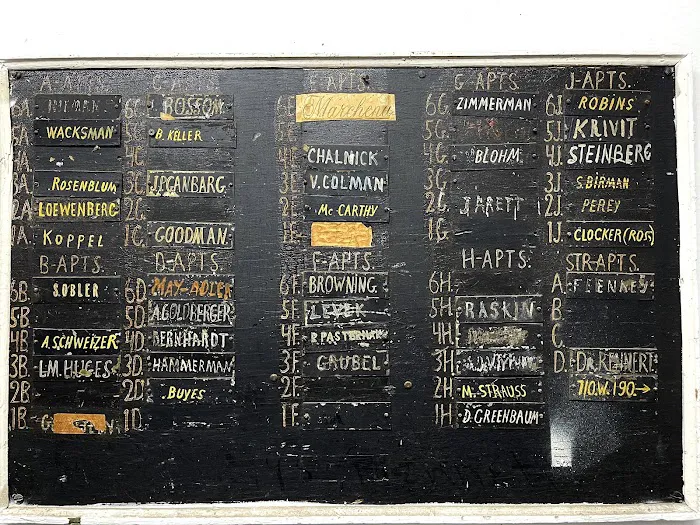 A-APTS.
6A
5A WACKSMAN
4A
3A ROSENBLUM
2A LOEWENBERG
1A KOPPEL
B-APTS.
6B SOBLER
5B
4B A.SCHWEIZER
3B L.M.HUGES
2B
1B
C-APTS.
6C ROSSON
5C B.KELLER
4C
3C J.P.GANBARG
2C
1C GOODMAN
D-APTS.
6D MAY-ADLER
5D A.GOLDBERGER
4D BERNHARDT
3D HAMMERMAN
2D BUYES
1D
E-APTS.
6E
5E
4E CHALNICK
3E V.COLMAN
2E Mc CARTHY
1E
F-APTS.
6F BROWNING
5F LEVEK
4F R.PASTERNAK
3F GAUBEL
2F
1F
G-APTS.
6G ZIMMERMAN
5G
4G BLOHM
3G
2G
1G
H-APTS.
6H
5H RASKIN
4H
3H
2H M.STRAUSS
1H D.GREENBAUM
J-APTS.
6J ROBINS
5J KRIVIT
4J STEINBERG
3J S.BIRMAN
2J PEREY
1J CLOCKER(ROS)
STR-APTS.
A. FEENEY
B.
C.
D. DR.
710.W.190.→